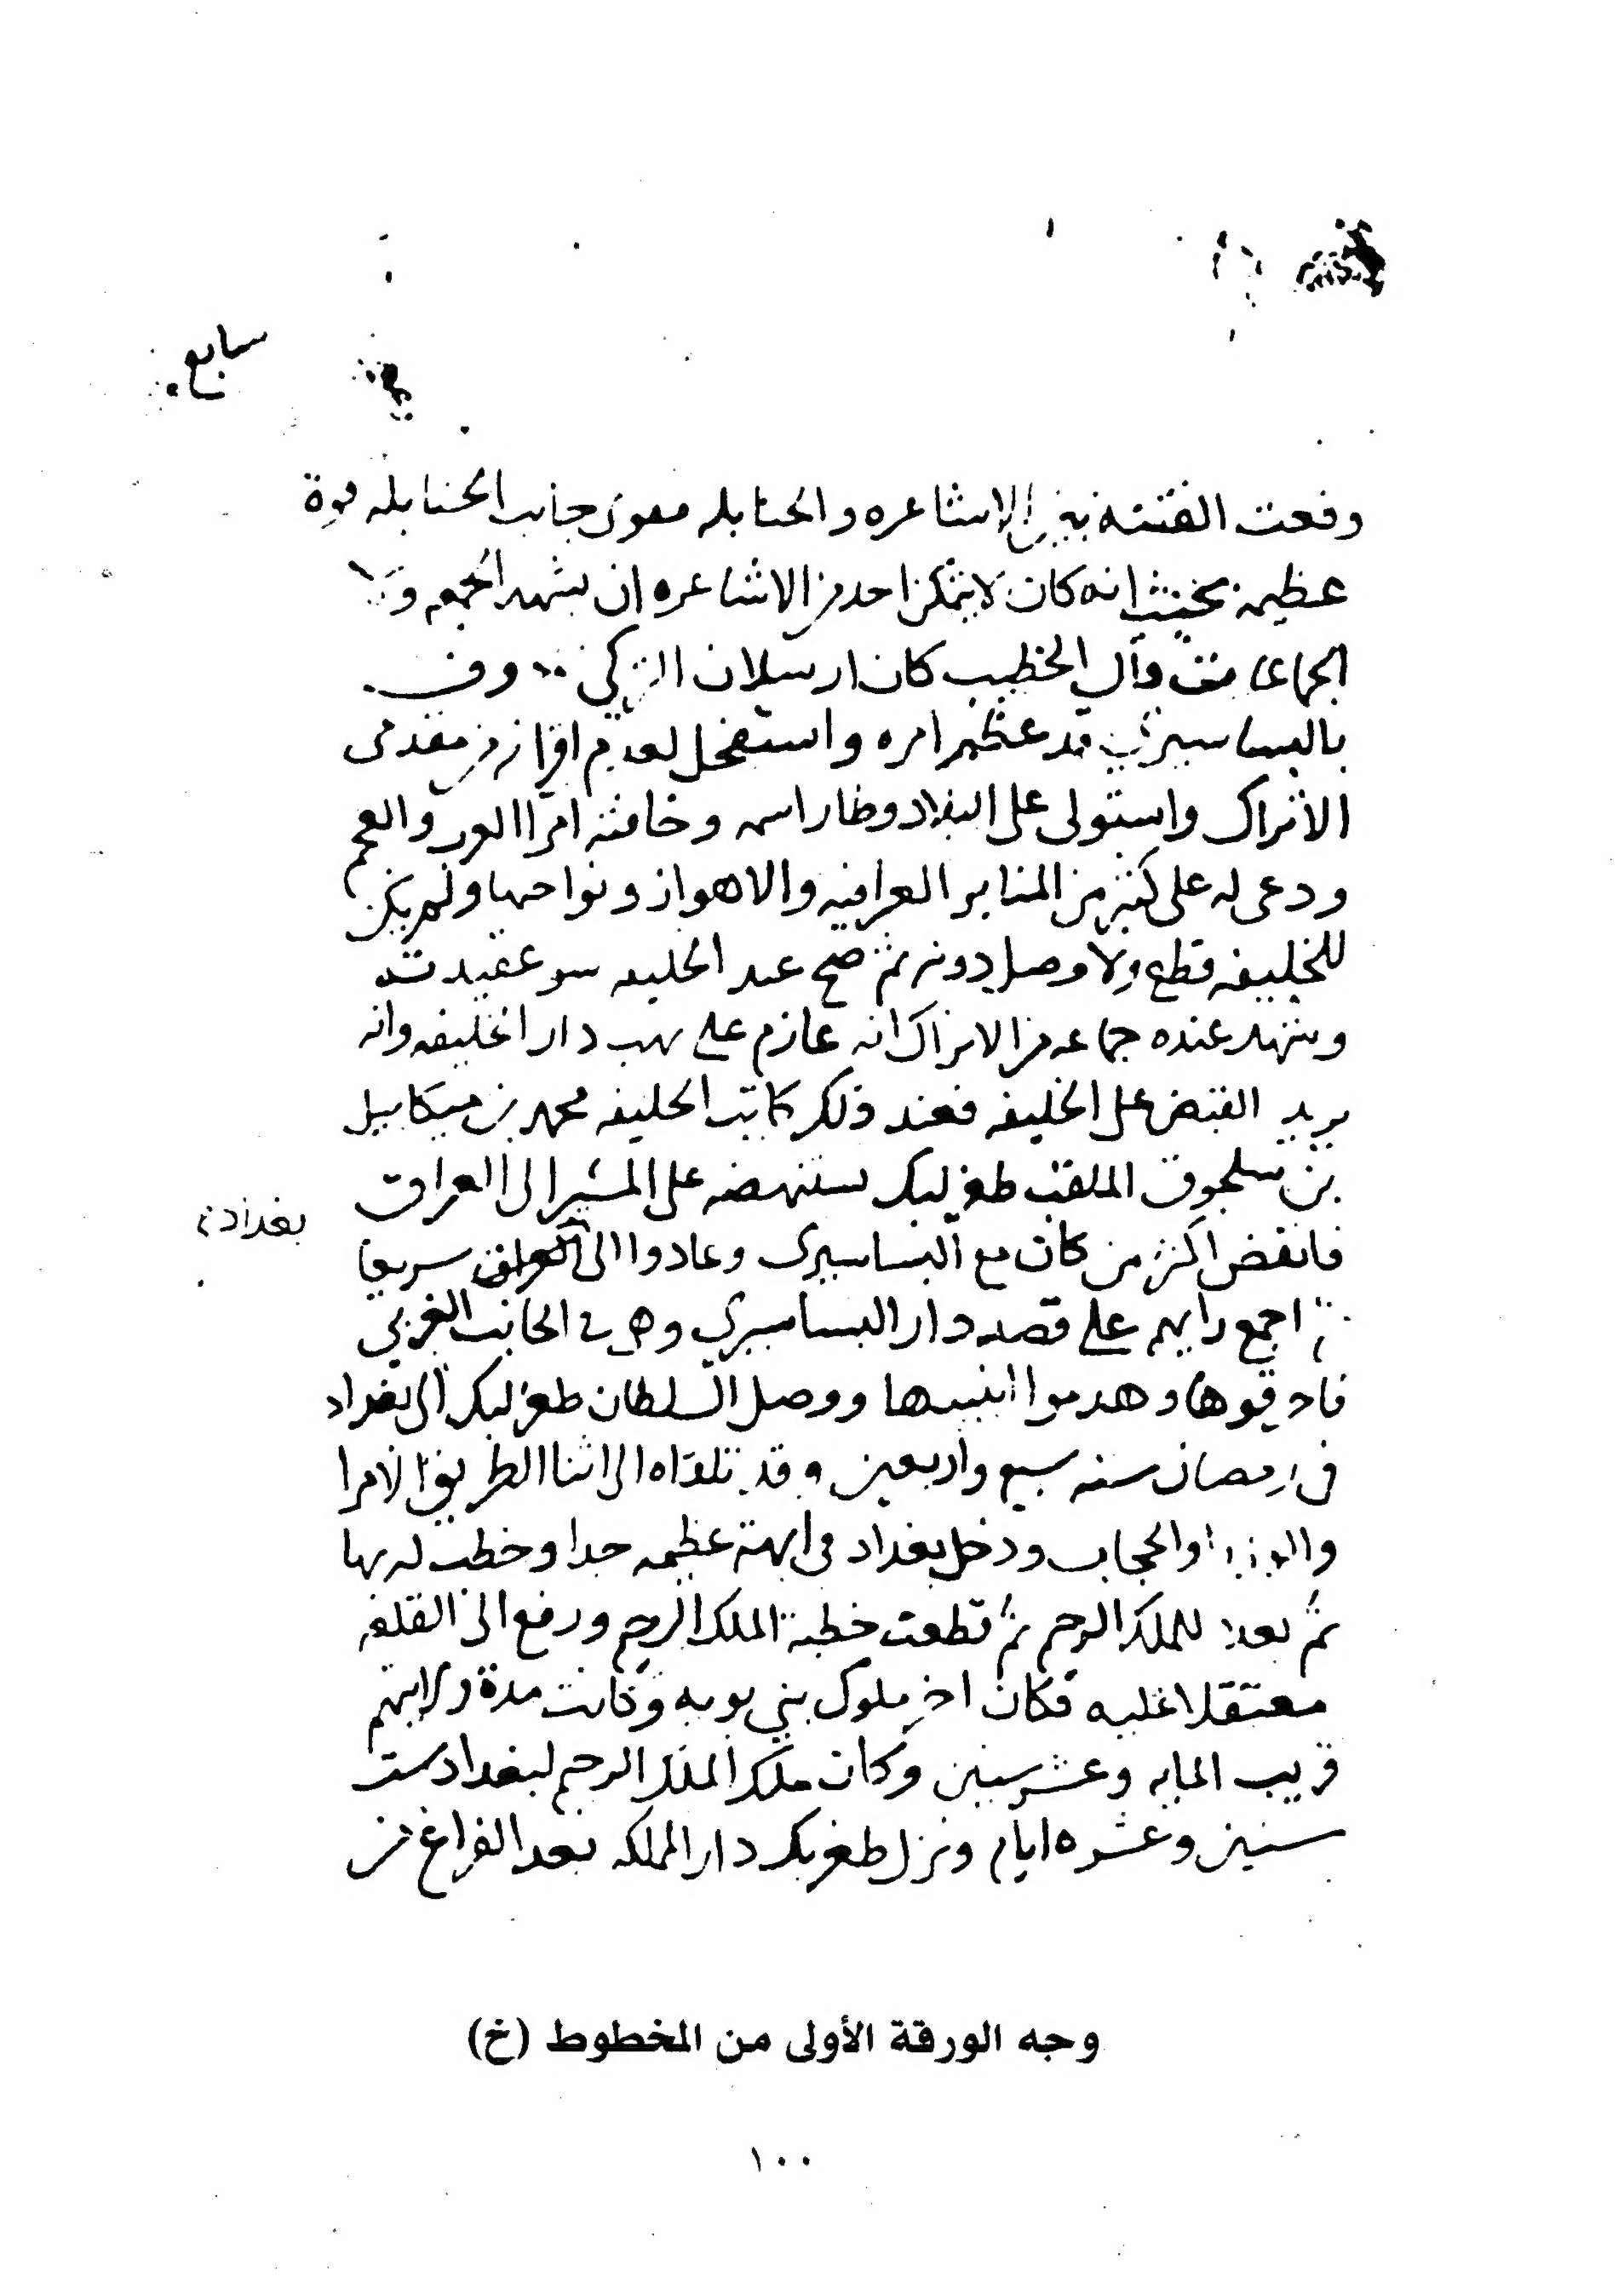 سابع
وقعت الفتنه بين الاشاعره والحنابله فقوى جانب الحنابله قوة
عظيمة بحيث انه كان لا يتمكن احد من الاشاعره ان يشهد الجمعه ولا
الجماعات قال الخطيب كان ارسلان التركي
بالبساسيري قد عظم امره واستفحل لعدم اقرانه من مقدمي
الاتراك واستولى على البلاد وطار اسمه وخافته امرا العرب والعجم
ودعى له على كثير من المنابر العراقيه والاهواز ونواحيها ولم يكن
للخليفه قطع ولا وصل دونه ثم صح عند الخليفه سو عقيدته
وشهد عنده جماعه من الاتراك انه عازم على نهب دار الخليفه وانه
يريد القبض على الخليفه فعند ذلك كاتب الخليفه محمد بن ميكاييل
بن سلجوق الملقب طغرلبك يستنهضه على المسير الى العراق
بغداد
فانفض اكثر من كان مع البساسيري وعادوا الى العراق سريعا
ثم اجمع رايهم على قصد دار البساسيري وهي في الجانب الغربي
فاحرقوها وهدموا ابنيتها ووصل السلطان طغرلبك الى بغداد
في رمضان سنه سبع واربعين وقد تلقاه الى اثنا الطريق الامرا
والوزرا والحجاب ودخل بغداد في ابهة عظيمه جدا وخطب له بها
ثم بعده للملك الرحيم ثم قطعت خطبة الملك الرحيم ورفع الى القلعه
معتقلا عليه فكان اخر ملوك بني بويه وكانت مدة ولايتهم
قريب المايه وعشر سنين وكان ملك الملك الرحيم لبغداد ست
سنين وعشره ايام ونزل طغربك دار المملكه بعد الفراغ من
وجه الورقة الأولى من المخطوط (خ)
١٠٠